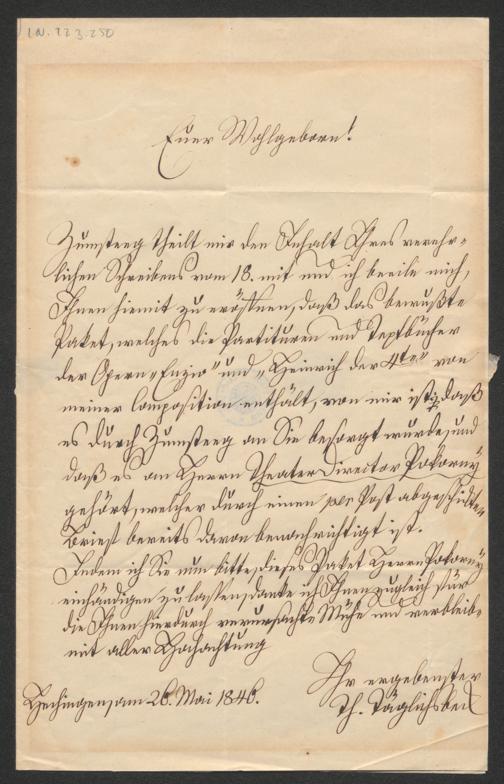 I.N. 223.250
Euer Wohlgeborn!
Zumsteeg theilt mir den Inhalt Ihres verehr-
lichen Schreibens vom 18. mit und ich beeile mich,
Ihnen hiemit zu eröffnen, daß das bewußte
Paket, welches die Partituren und Textbücher
der Opern „Enzio" und „Heinrich der 4te" von
meiner Composition enthält, von mir ist, daß
es durch Zumsteeg an Sie besorgt wurde, und
daß es an Herrn Theater Director Pokorny
gehört, welcher durch einen per Post abgeschickten
Brief bereits davon benachrichtigt ist.
Indem ich Sie nun bitte, dieses Paket Herrn Pokorny
einhändigen zu lassen, danke ich Ihnen zugleich für
die Ihnen hierdurch verursachte Mühe und verbleibe
mit aller Hochachtung
Ihr ergebenster
Th. Täglichsbeck
Hechingen, am 26. Mai 1846.